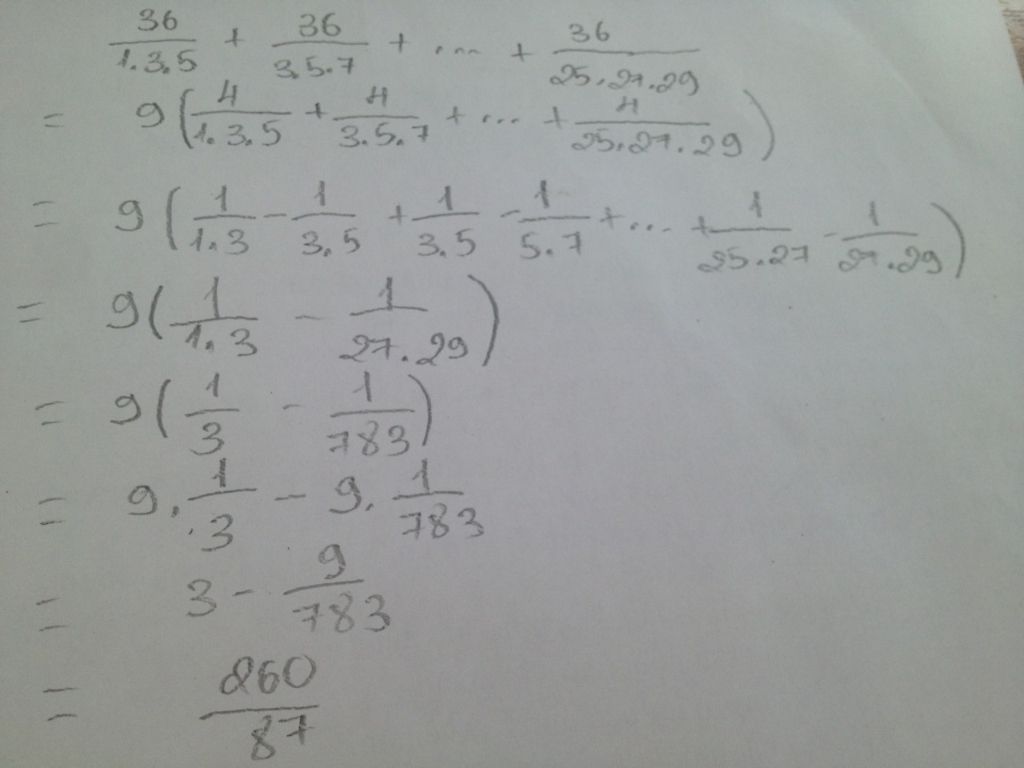 36/1.3.5 + 36/3.5.7 + ... + 36/25.27.29
= 9(4/1.3.5 + 4/3.5.7 + ... + 4/25.27.29)
= 9(1/1.3 - 1/3.5 + 1/3.5 - 1/5.7 + ... + 1/25.27 - 1/27.29)
= 9(1/1.3 - 1/27.29)
= 9(1/3 - 1/783)
= 9.1/3 - 9.1/783
= 3 - 9/783
= 260/87